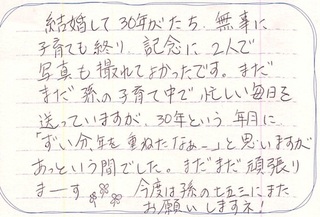 結婚して30年がたち、無事に
子育ても終り、記念に2人で
写真も撮れてよかったです。まだ
まだ孫の子育て中で忙しい毎日を
送っていますが、30年という年月に
「ずい分、年を重ねたなぁー」と思いますが
あっという間でした。まだまだ頑張り
まーす 今度は孫の七五三にまた
お願いしますネ!